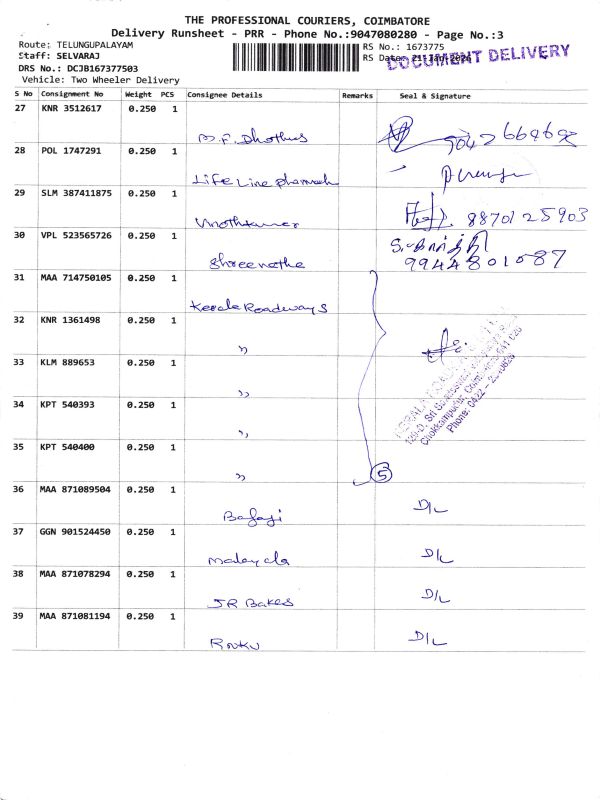 THE PROFESSIONAL COURIERS, COIMBATORE
Delivery Runsheet - PRR - Phone No.:9047080280 - Page No.:3
Route: TELUNGUPALAYAM
RS No.: 1673775
Staff: SELVARAJ
RS Date: 21-Jan-2026
DOCUMENT DELIVERY
DRS No.: DCJB167377503
Vehicle: Two Wheeler Delivery
S No Consignment No Weight PCS Consignee Details Remarks Seal & Signature
27 KNR 3512617 0.250 1
M.F. Dhothies
28 POL 1747291 0.250 1
Life Line pharmah
29 SLM 387411875 0.250 1
8870125903
30 VPL 523565726 0.250 1
Shreenathe
9944801087
31 MAA 714750105 0.250 1
Kerala Roadways
32 KNR 1361498 0.250 1
"
33 KLM 889653 0.250 1
"
34 KPT 540393 0.250 1
"
35 KPT 540400 0.250 1
"
5
36 MAA 871089504 0.250 1
Bafaji D/L
37 GGN 901524450 0.250 1
Malayala D/L
38 MAA 871078294 0.250 1
JR Bakes D/L
39 MAA 871081194 0.250 1
D/L